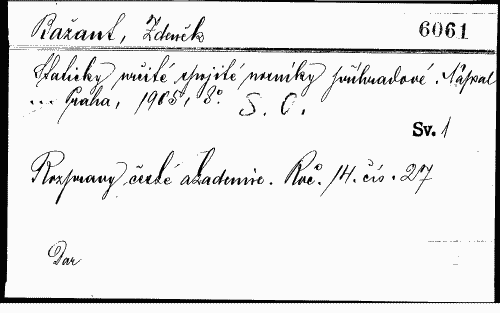 Bažant, Zdeněk 6061
Staticky určité spojité nosníky příhradové. Napsal
... Praha, 1905, 8°. S. O.
Sv. 1
Rozpravy české akademie. Roč. 14. čís. 27
Dar